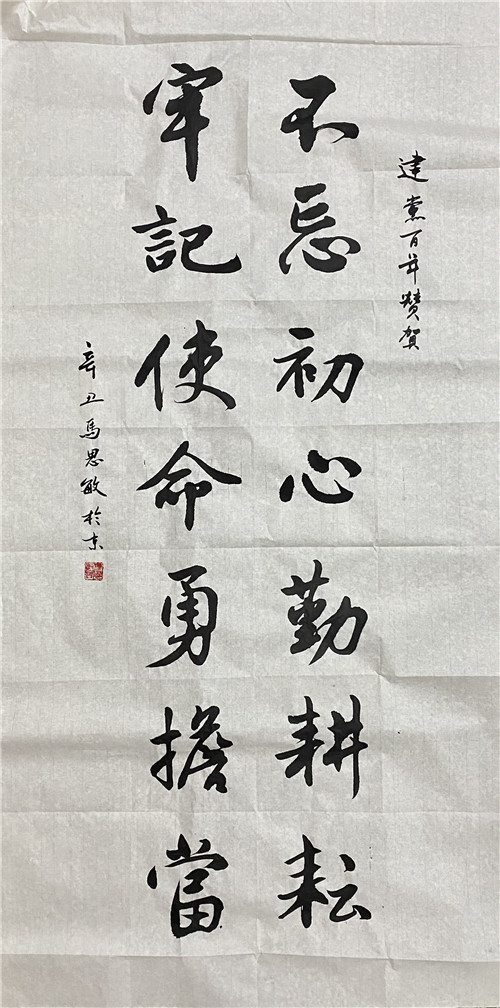 建党百年赞贺
不忘初心勤耕耘
牢記使命勇擔當
辛丑馬思敏於京